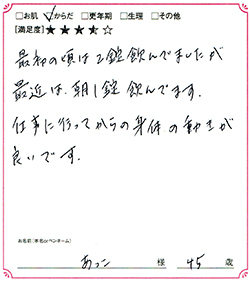 □お肌 ☑からだ □更年期 □生理 □その他
[満足度]★★★⯪☆
最初の頃は2錠飲んでましたが
最近は、朝1錠飲んでます。
仕事に行ってからの身体の動きが
良いです。
お名前(本名orペンネーム)
あっこ 様 45 歳